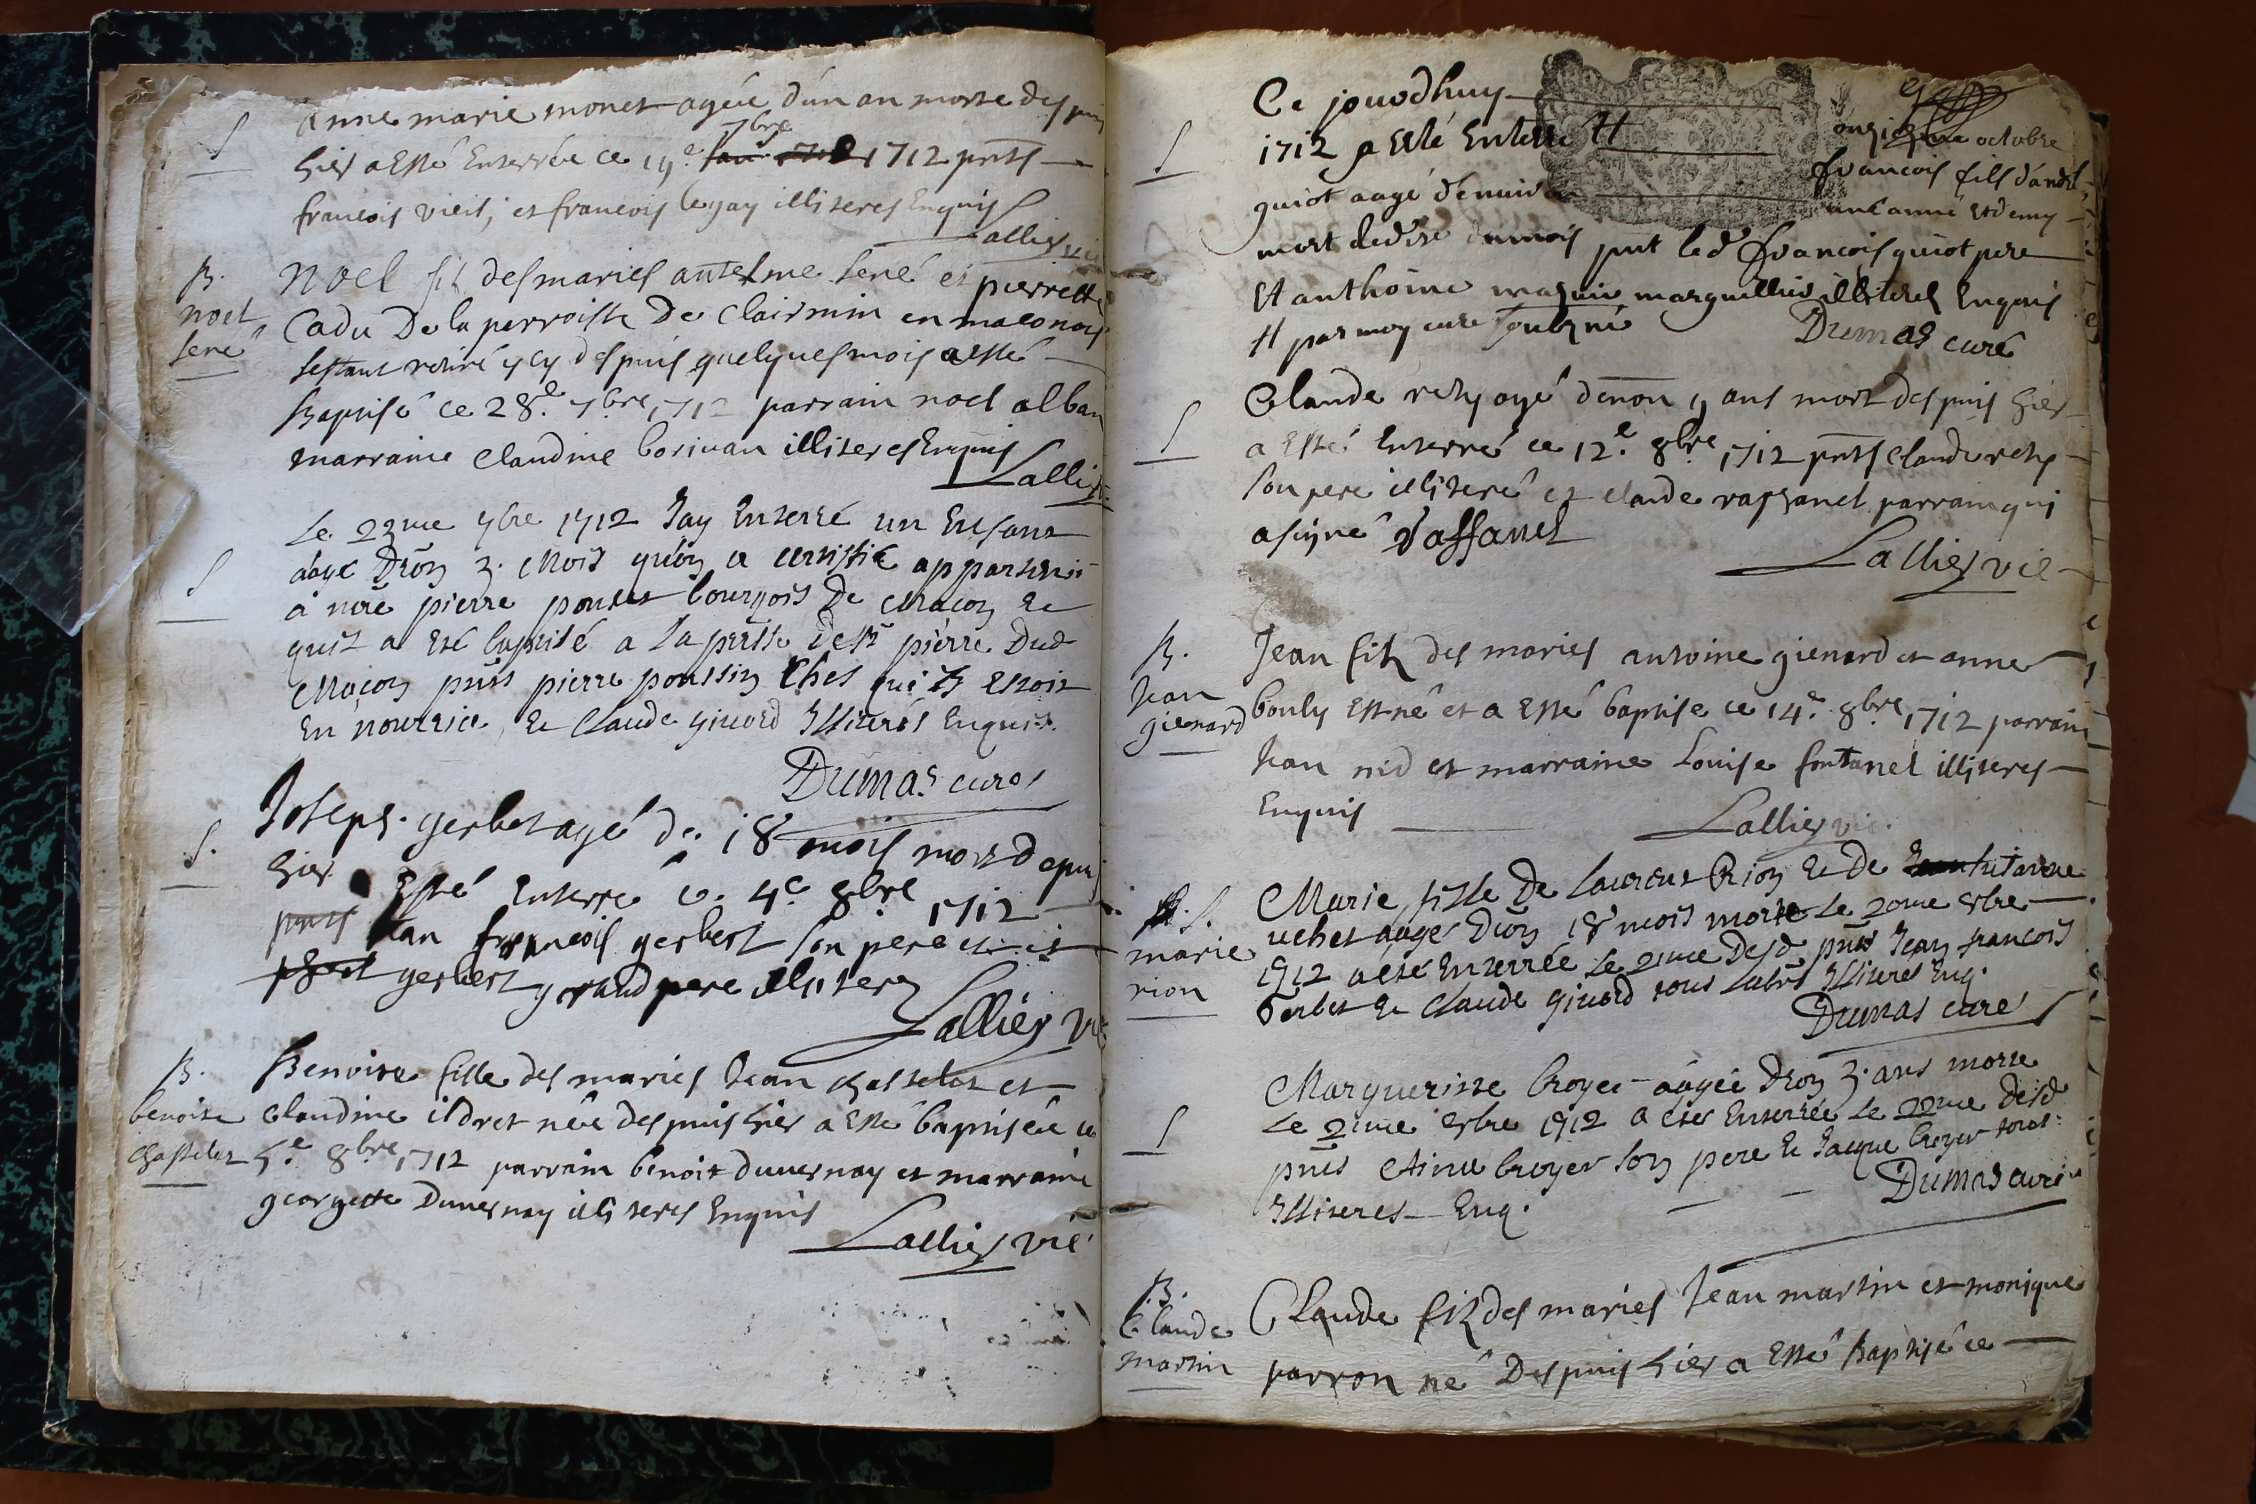 S
Anne marie monet agée d'un an morte despuis
hier a Esté Enterrée ce 19e 7bre 1712 pnts
francois vieil; et francois legay illiteres Enquis
Lallier vic
B.
noel
sené
Noel fil des mariés antelme sené et pierrette
Cadu De la perroisse De Clairmin en maconois
sestant retiré ycy despuis quelques mois a esté
Baptisé ce 28e 7bre 1712 parrain noel alban
marraine Claudine borivan illiteres Enquis
Lallier
S
Le 29me 7bre 1712 Jay Enterré un Enfant
aagé Dron 3. Mois qu'on a certifié appartenir
à nore pierre pontet bourgois De Macon Et
quil a Eté baptisé a la prsse De St pierre Dud
Macon pnts pierre poussin Ches qui il Estoit
En nourrice, Et Claude givord Illiterés Enquis.
Dumas curé
S.
Joseph gerbet agé de 18 mois mort depuis
hier Esté Enterré ce 4e 8bre 1712
pnts Jean francois gerbert son pere et
gerbert grand pere illiteres
Lallier vic
B.
benoite
Chastelet
Benoite fille des mariés Jean Chastelet et
Claudine ildret née despuis hier a Esté baptisée ce
5e 8bre 1712 parrain benoit duvernay et marraine
georgette Duvernay illiteres Enquis
Lallier vic
S
Ce jourdhuy onzieme octobre
1712 a Esté Enterré H francois fils d'andré
guiot aagé d'enuiron une anné et demy
mort ledixe dumois pnt led francois guiot pere
Et anthoine maguin marguillier illiteres Enquis
H par moy curé soubzné
Dumas curé
S
Claude rety agé denon 9 ans mort despuis hier
a Esté Enterré ce 12e 8bre 1712 pnts Claude rety
son pere illiteré et claude raffanel parrain qui
a signé Raffanel
Lallier vic
B.
Jean
gienard
Jean filz des mariés antoine gienard et anne
bouly Est né et a Esté baptisé ce 14e 8bre 1712 parrain
Jean nid et marraine Louise fontanel illiteres
Enquis
Lallier vic.
S.
marie
rion
Marie fille De Laurent Rion Et De
uchet aagée Dron 18 mois morte Le 20me 8bre
1712 a eté Enterrée Le 21me Desd pnts Jean francois
Gerbet Et Claude givord tous Labrs Illiteres Enq.
Dumas curé
S
Margueritte broyer aagée Dron 3. ans morte
Le 21me 8bre 1712 a eté Enterrée Le 22me Desd
pnts Aimé broyer son pere Et Jacque broyer tous
Illiteres Enq.
Dumas curé
B.
Claude
martin
Claude filz des mariés Jean martin et monique
parron né Despuis hier a Esté Baptisé ce